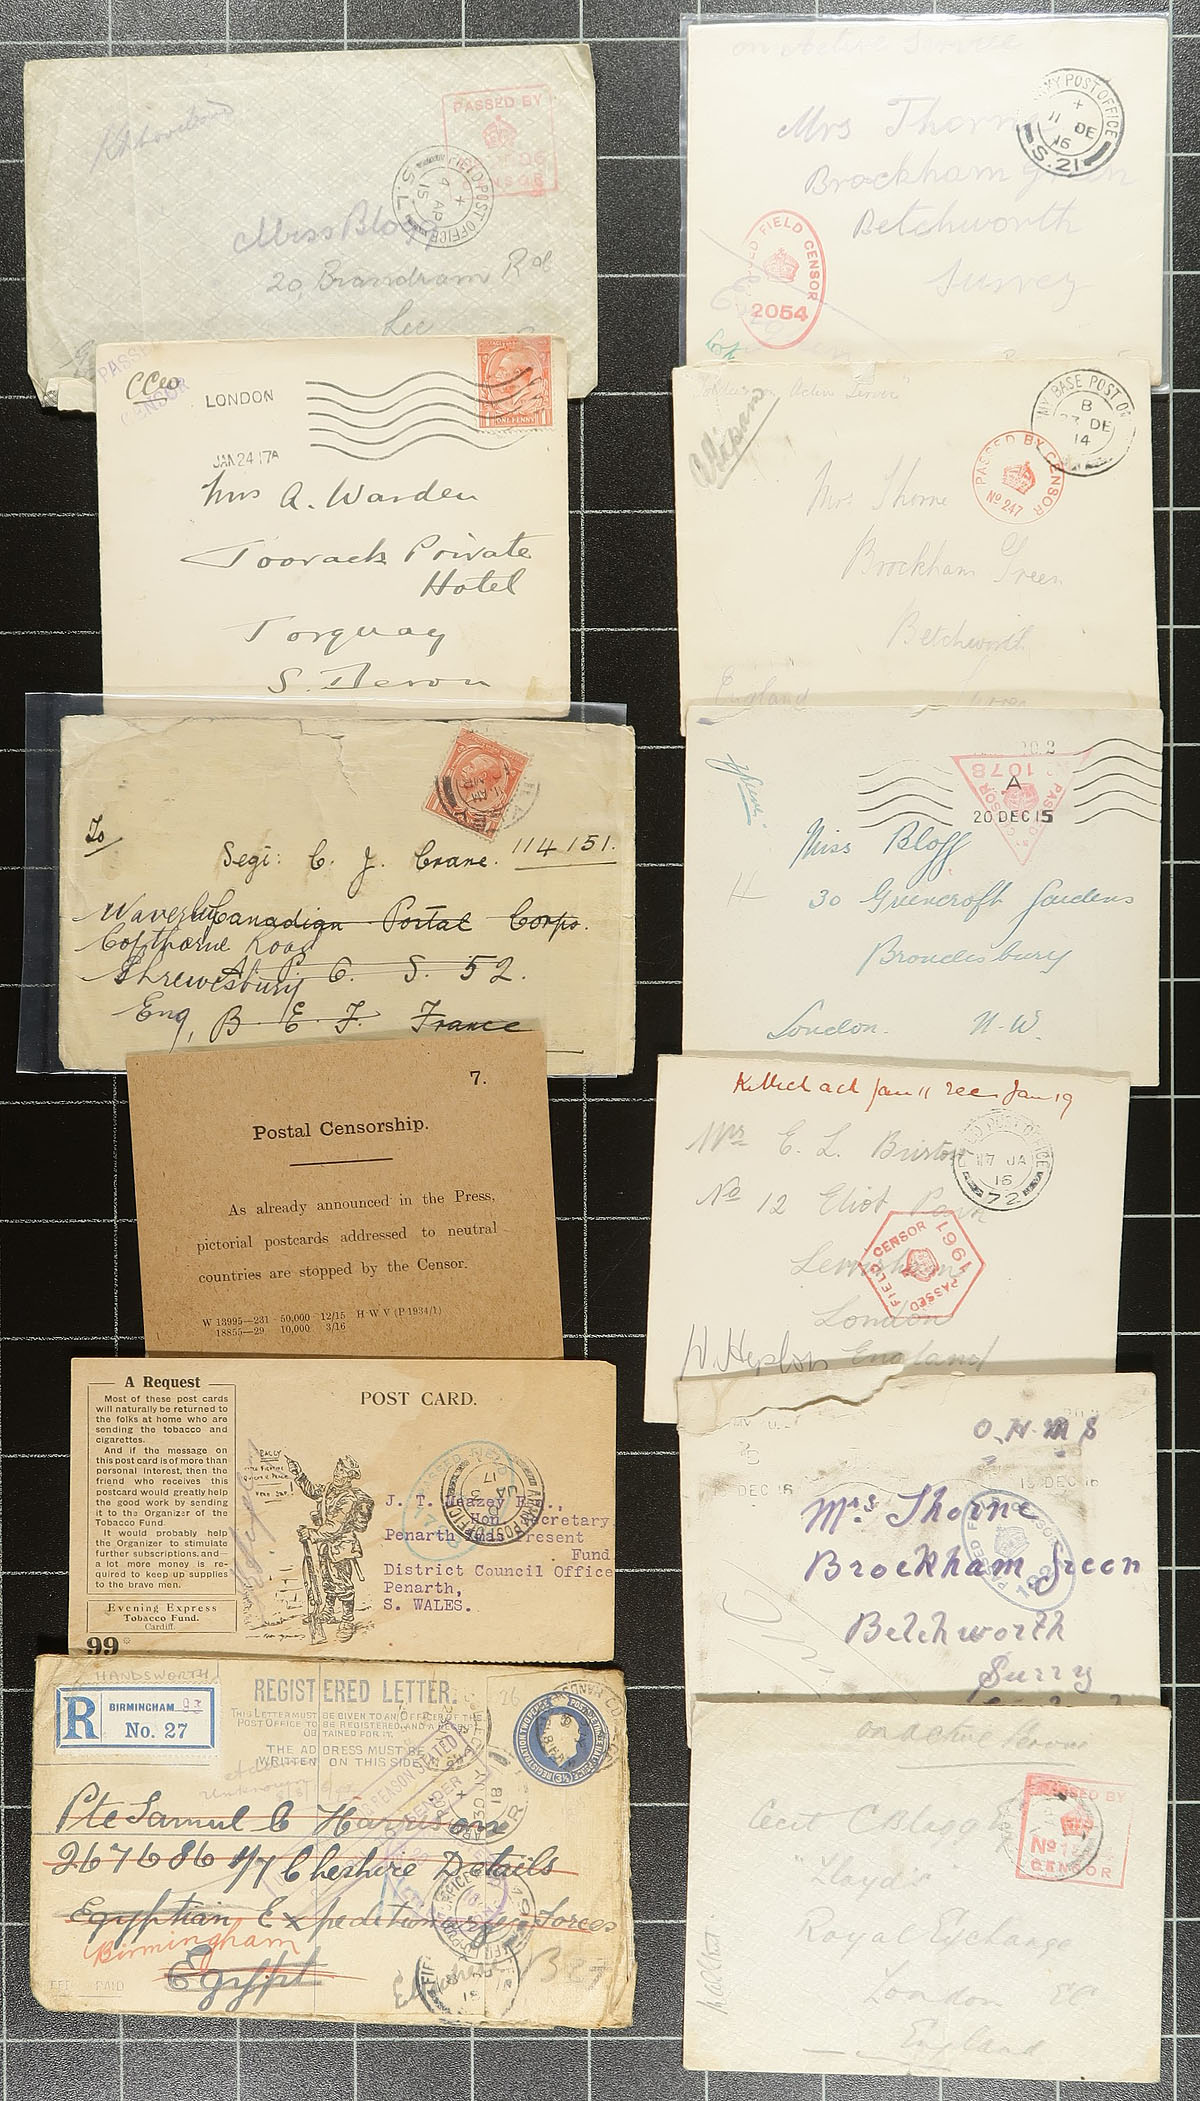 PASSED BY
CENSOR
FIELD POST OFFICE
4 AP
15
S.L.
Miss Bloff
20, Brandram Rd
Lee
PASSED
CENSOR
LONDON
JAN 24 17A
ONE PENNY
Mrs A. Warden
Toorack Private
Hotel
Torquay
S. Devon
To
Segt: C. J. Crane. 114151.
Waverley Canadian Postal Corps.
Copthorne Road
Shrewsbury A. P. O. S. 52.
Eng, B. E. F. France
7.
Postal Censorship.
As already announced in the Press,
pictorial postcards addressed to neutral
countries are stopped by the Censor.
W 13995—231 50,000 12/15 H W V (P 1934/1)
18855—29 10,000 3/16
A Request
Most of these post cards
will naturally be returned to
the folks at home who are
sending the tobacco and
cigarettes.
And if the message on
this post card is of more than
personal interest, then the
friend who receives this
postcard would greatly help
the good work by sending
it to the Organizer of the
Tobacco Fund.
It would probably help
the Organizer to stimulate
further subscriptions. and—
a lot more money is re-
quired to keep up supplies
to the brave men.
Evening Express
Tobacco Fund.
Cardiff.
99
POST CARD.
J. T. Heazey Esq.,
Hon. Secretary
Penarth Xmas Present
Fund
District Council Office
Penarth,
S. WALES.
HANDSWORTH
R
BIRMINGHAM 93
No. 27
REGISTERED LETTER.
THIS LETTER MUST BE GIVEN TO AN OFFICER OF THE
POST OFFICE TO BE REGISTERED, AND A RECEIPT
OBTAINED FOR IT.
THE ADDRESS MUST BE
WRITTEN ON THIS SIDE.
Pte Samuel C Harrison
267686 1/7 Cheshire Details
Egyptian Expeditionary Forces
Birmingham
Egypt
on Active Service
ARMY POST OFFICE
11 DE
16
S.21
Mrs Thorne
Brockham Green
Betchworth
Surrey
PASSED FIELD CENSOR
2054
"Active Service"
ARMY BASE POST OF
B
27 DE
14
PASSED BY CENSOR
No 247
Mrs Thorne
Brockham Green
Betchworth
England
1078
PASSED BY CENSOR
A
20 DEC 15
Miss Bloff
30 Greencroft Gardens
Brondesbury
London. N.W.
Jan 11 rec Jan 19
FIELD POST OFFICE
17 JA
16
72
Mrs E. L. Burton
No 12 Eliot Park
Lewisham
London
England
PASSED FIELD CENSOR
1961
O.H.M.S
15 DEC 16
Mrs Thorne
Brockham Green
Betchworth
Surry
on active service
PASSED BY
No
CENSOR
Cecil C Blagg
"Lloyds"
Royal Exchange
London EC
England